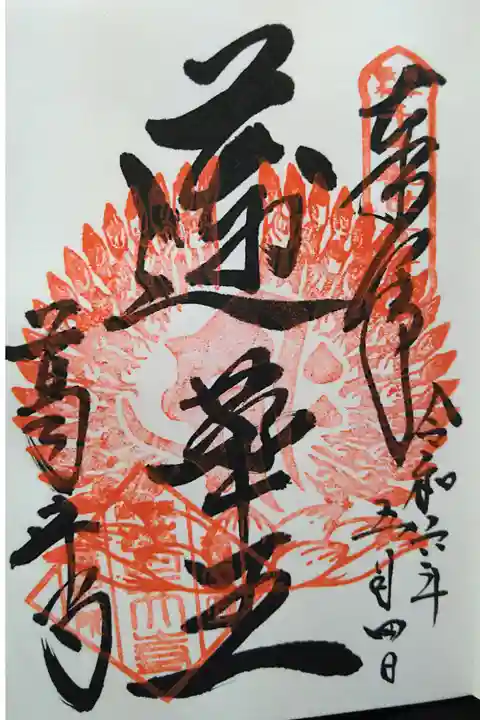 奉拝
令和六年
五月四日
蓮華王
葛井寺